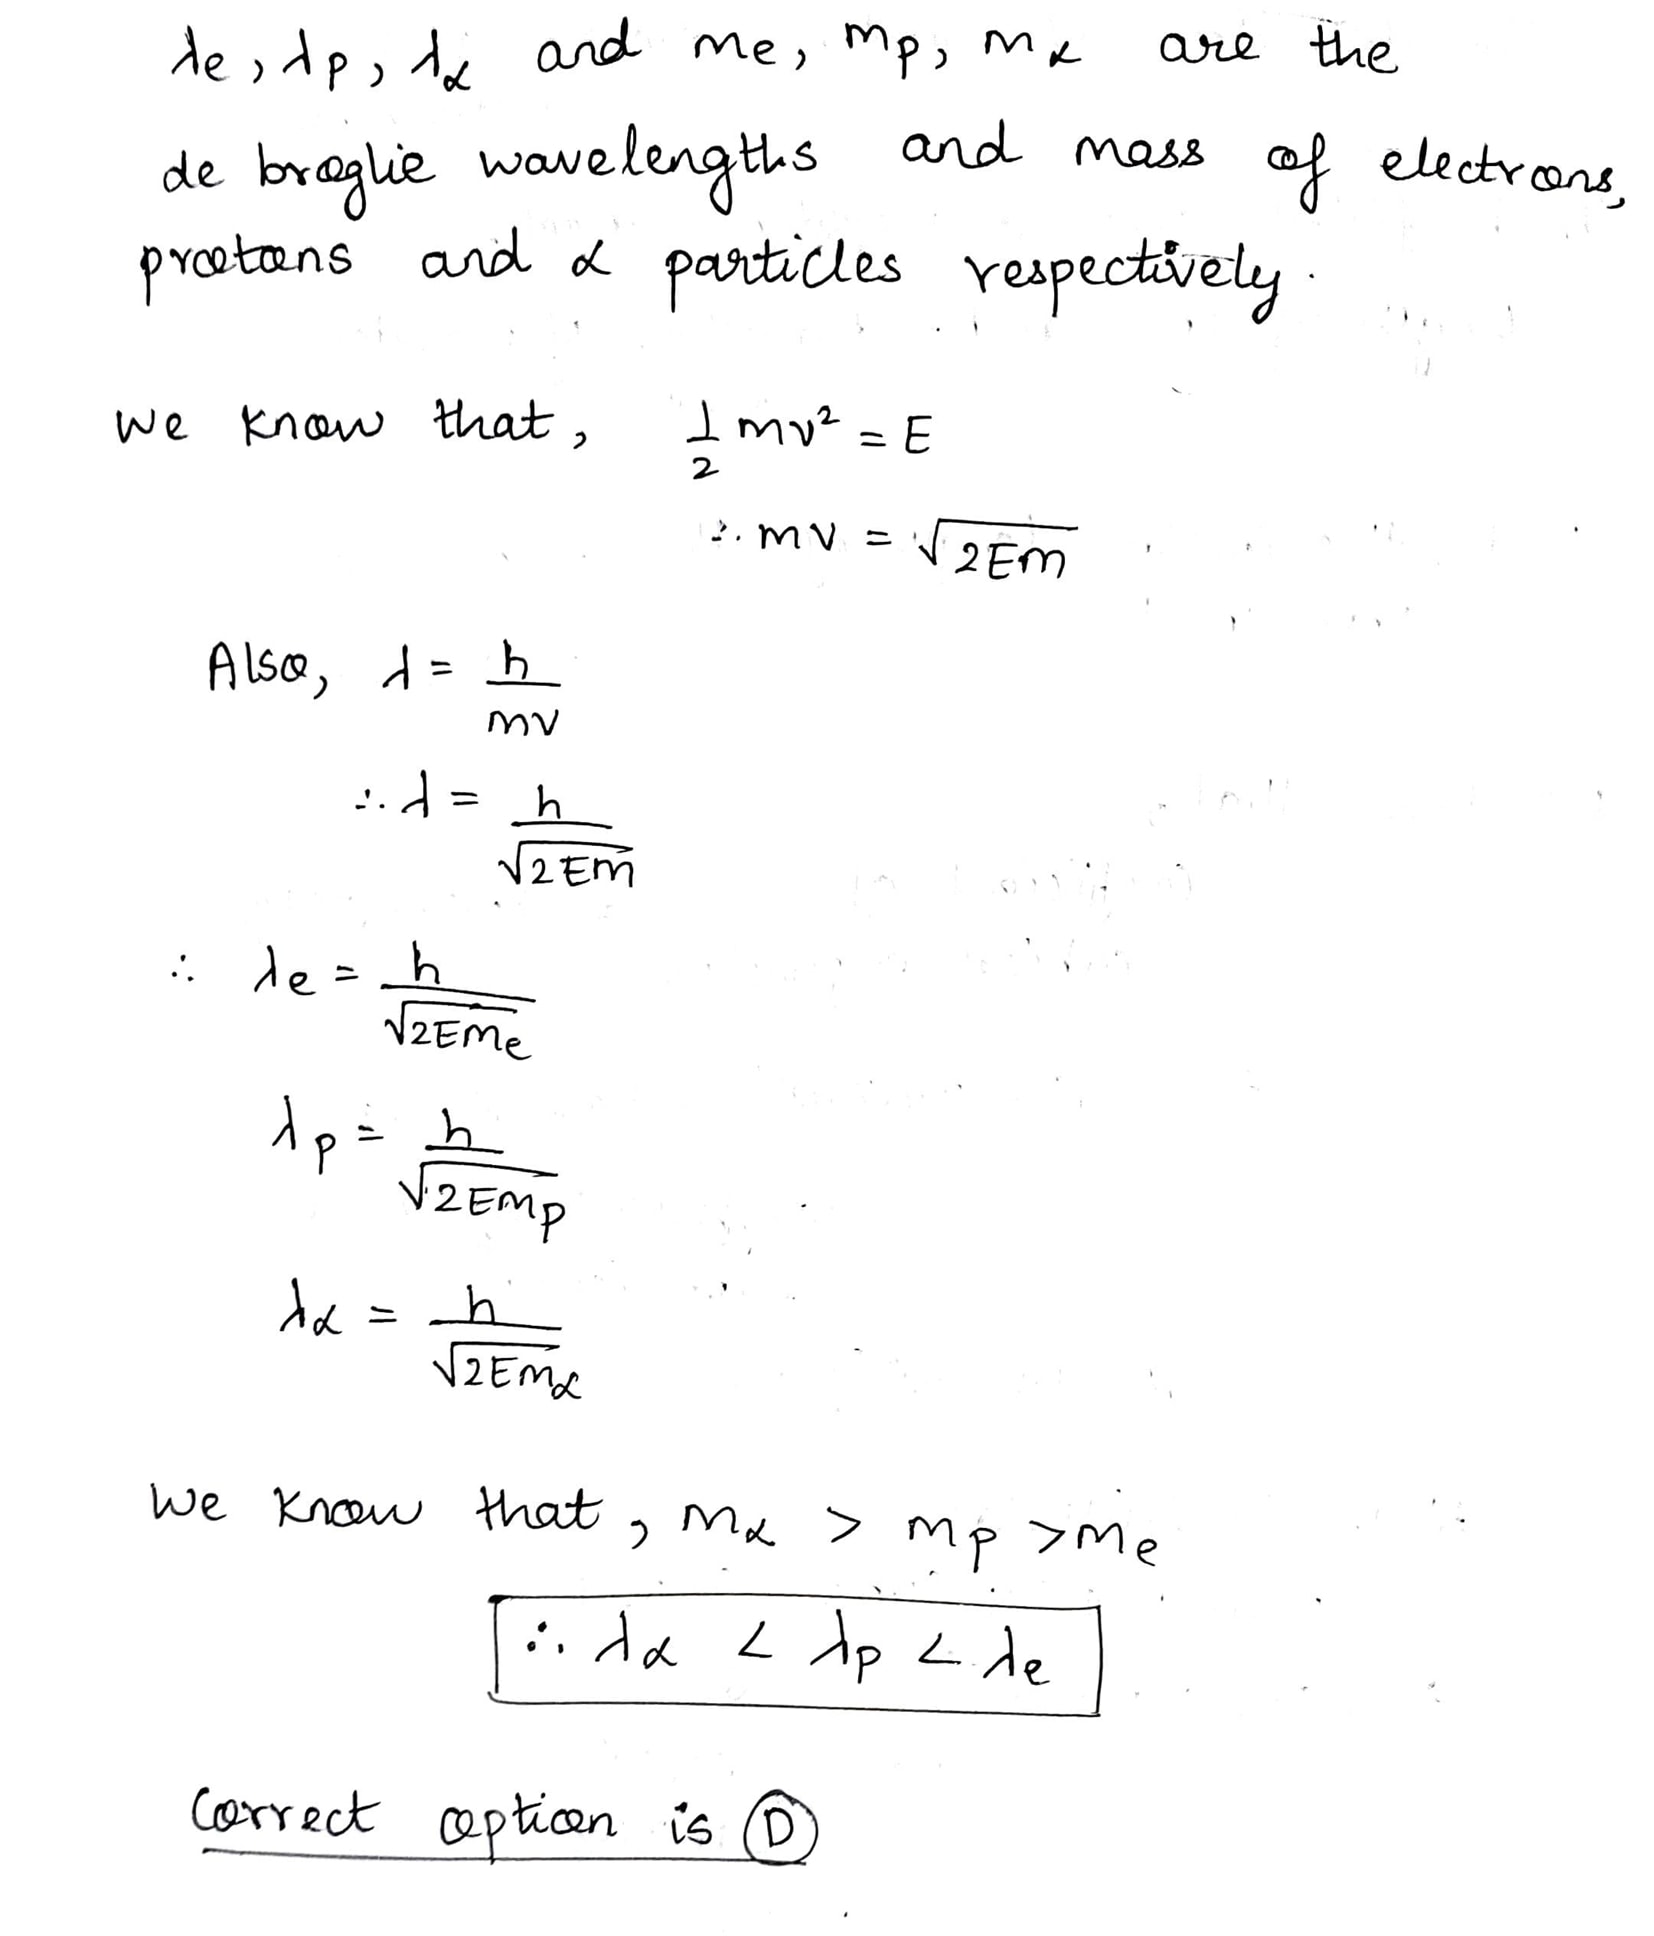 λe, λp, λα and me, mp, mα are the
de broglie wavelengths and mass of electrons,
protons and α particles respectively.
We know that, 1/2 mv² = E
∴ mv = √2Em
Also, λ = h/mv
∴ λ = h/√2Em
∴ λe = h/√2Eme
λp = h/√2Emp
λα = h/√2Emα
We know that, mα > mp > me
∴ λα < λp < λe
Correct option is D